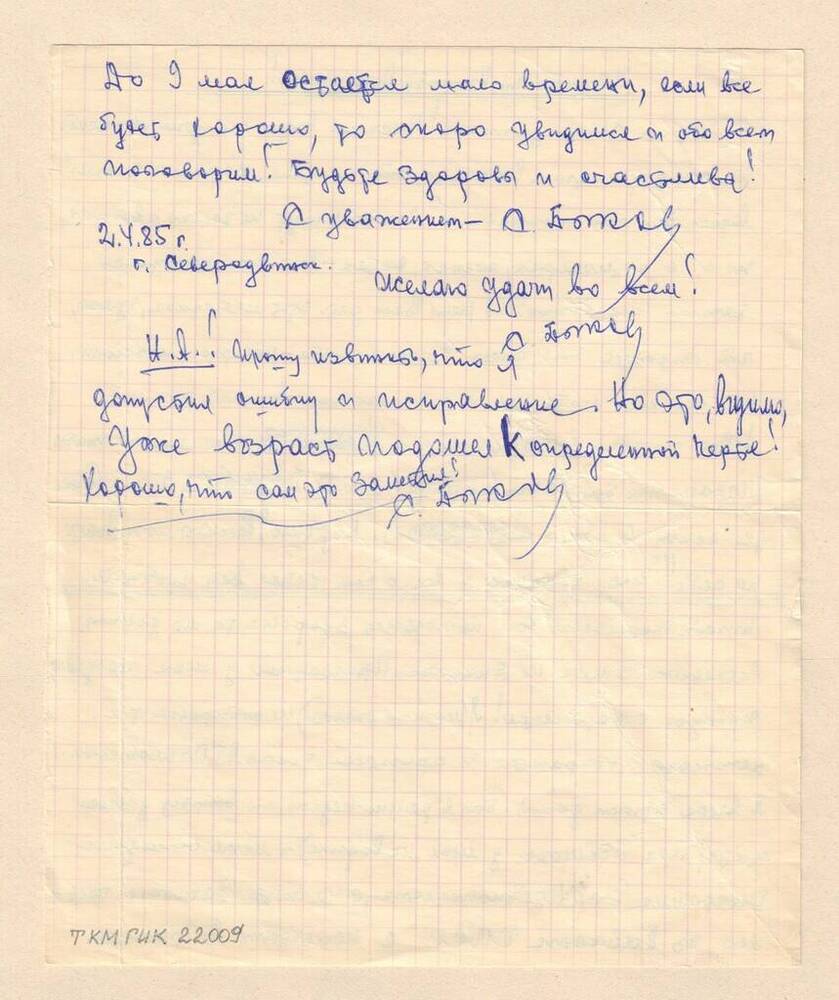 До 9 мая остается мало времени, если все
будет хорошо, то скоро увидимся и обо всем
поговорим! Будьте здоровы и счастливы!
С уважением – С. Быков
2.4.85 г.
г. Северодвинск.
Желаю удачи во всем!
С Быков
Н.А.! Прошу извинить, что я
допустил ошибку и исправление. Но это, видимо,
уже возраст подошел к определенной черте!
Хорошо, что сам это заметил!
С. Быков
ТКМ ГИК 22009